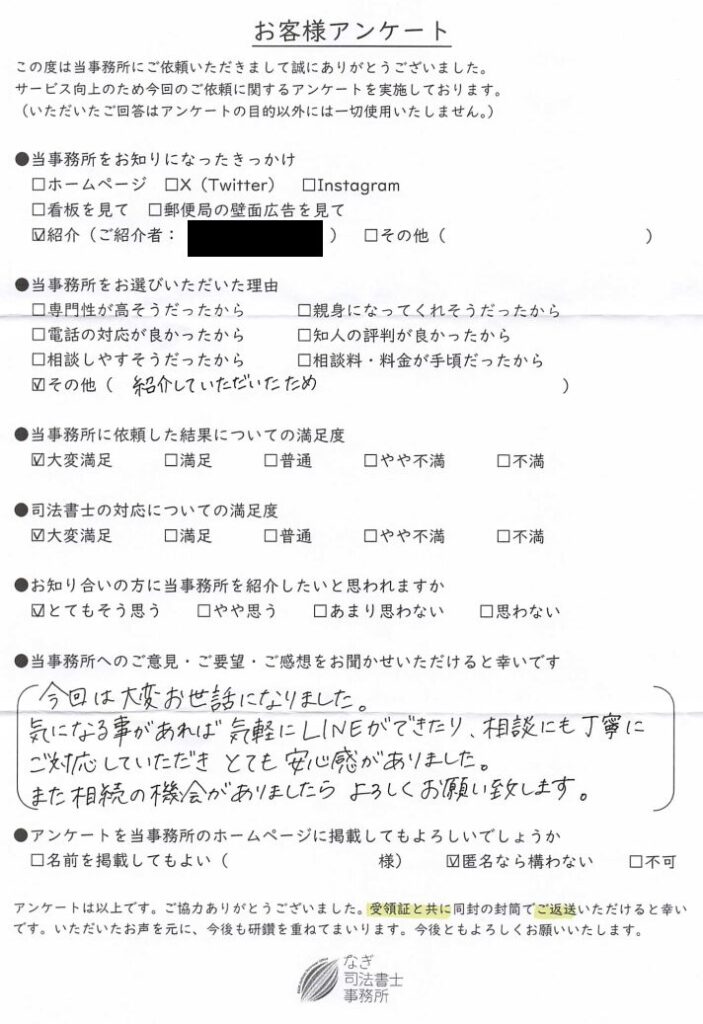 お客様アンケート
この度は当事務所にご依頼いただきまして誠にありがとうございました。
サービス向上のため今回のご依頼に関するアンケートを実施しております。
（いただいたご回答はアンケートの目的以外には一切使用いたしません。）
●当事務所をお知りになったきっかけ
☐ホームページ ☐X（Twitter） ☐Instagram
☐看板を見て ☐郵便局の壁面広告を見て
☑紹介（ご紹介者： ） ☐その他（ ）
●当事務所をお選びいただいた理由
☐専門性が高そうだったから ☐親身になってくれそうだったから
☐電話の対応が良かったから ☐知人の評判が良かったから
☐相談しやすそうだったから ☐相談料・料金が手頃だったから
☑その他（ 紹介していただいたため ）
●当事務所に依頼した結果についての満足度
☑大変満足 ☐満足 ☐普通 ☐やや不満 ☐不満
●司法書士の対応についての満足度
☑大変満足 ☐満足 ☐普通 ☐やや不満 ☐不満
●お知り合いの方に当事務所を紹介したいと思われますか
☑とてもそう思う ☐やや思う ☐あまり思わない ☐思わない
●当事務所へのご意見・ご要望・ご感想をお聞かせいただけると幸いです
今回は大変お世話になりました。
気になる事があれば気軽にLINEができたり、相談にも丁寧に
ご対応していただき とても 安心感がありました。
また相続の機会がありましたら よろしくお願い致します。
●アンケートを当事務所のホームページに掲載してもよろしいでしょうか
☐名前を掲載してもよい（ 様） ☑匿名なら構わない ☐不可
アンケートは以上です。ご協力ありがとうございました。受領証と共に同封の封筒でご返送いただけると幸い
です。いただいたお声を元に、今後も研鑽を重ねてまいります。今後ともよろしくお願いいたします。
なぎ
司法書士
事務所